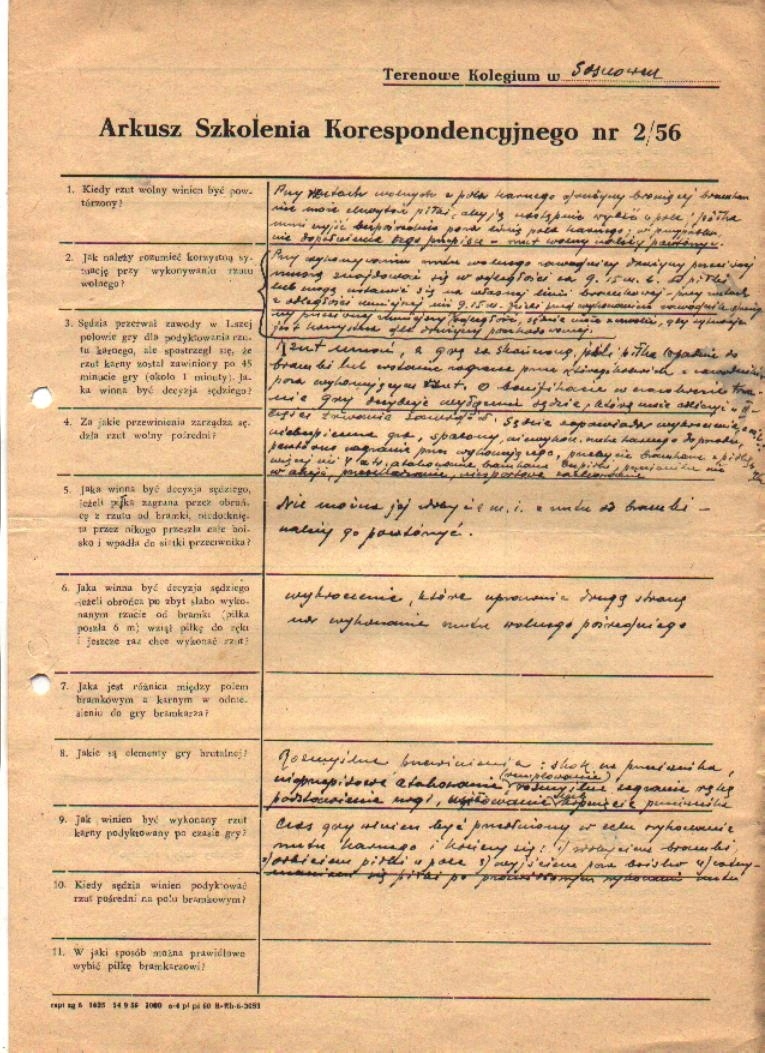 Terenowe Kolegium w Sosnowcu
Arkusz Szkolenia Korespondencyjnego nr 2/56
1. Kiedy rzut wolny winien być pow-
tórzony?
Przy rzutach wolnych z pola karnego drużyny broniącej bramkarz
nie może chwytać piłki, aby ją następnie wybić w pole; piłka
musi wyjść bezpośrednio poza linię pola karnego; w przypadku
nie dopełnienia tego przepisu – rzut wolny należy powtórzyć.
2. Jak należy rozumieć korzystną sy-
tuację przy wykonywaniu rzutu
wolnego?
Przy wykonywaniu rzutu wolnego zawodnicy drużyny przeciwnej
muszą znajdować się w odległości co 9.15 m. b. od piłki
lub mogą ustawić się na własnej linii bramkowej – przy rzutach
z odległości mniejszej niż 9.15 m. Jeżeli pod wykonaniem zawodnik
przeciwny odległość, sędzia może zezwolić, gdy sytuacja
jest korzystna dla drużyny poszkodowanej.
3. Sędzia przerwał zawody w I-szej
połowie gry dla podyktowania rzu-
tu karnego, ale spostrzegł się, że
rzut karny został zawiniony po 45
minucie gry (około 1 minuty). Ja-
ka winna być decyzja sędziego?
Rzut, a grę za skończoną, jeśli piłka wpadnie do
bramki lub zostanie zagrana przez z zawodników
poza wykonującym rzut. O
nia gry decyduje wyłącznie sędzia, który może odliczyć w II
części trwania zawodów.
4. Za jakie przewinienia zarządza sę-
dzia rzut wolny pośredni?
Sędzia
niebezpieczna gra, spalony, rzutu karnego do przodu,
powtórne zagranie przez wykonującego, przejście bramkarza z piłką
więcej niż 4 atakowanie bramkarza bez piłki, przeciwnika nie
w akcji, przeszkadzanie, niesportowe zachowanie
5. Jaka winna być decyzja sędziego,
jeżeli piłka zagrana przez obroń-
cę z rzutu od bramki, niedotknię-
ta przez nikogo przeszła całe boi-
sko i wpadła do siatki przeciwnika?
Nie można jej zdobyć m. i. z rzutu od bramki –
należy go powtórzyć.
6. Jaka winna być decyzja sędziego
jeżeli obrońca po zbyt słabo wyko-
nanym rzucie od bramki (piłka
poszła 6 m) wziął piłkę do ręki
i jeszcze raz chce wykonać rzut?
wykroczenie, które uprawnia drugą stronę
na wykonanie rzutu wolnego pośredniego
7. Jaka jest różnica między polem
bramkowym a karnym w odnie-
sieniu do gry bramkarza?
8. Jakie są elementy gry brutalnej?
Rozmyślne przewinienia: skok na przeciwnika,
nieprzepisowe atakowanie, rozmyślne zagranie ręką
podstawienie nogi, usiłowanie kopnięcia przeciwnika
9. Jak winien być wykonany rzut
karny podyktowany po czasie gry?
Czas gry winien być przedłużony w celu wykonania
rzutu karnego i kończy się: 1) zdobyciem bramki,
2) odbiciem piłki w pole 3) wyjściem poza boisko 4) zatrzy-
maniem się piłki po prawidłowym wykonaniu rzutu
10. Kiedy sędzia winien podyktować
rzut pośredni na polu bramkowym?
11. W jaki sposób można prawidłowo
wybić piłkę bramkarzowi?